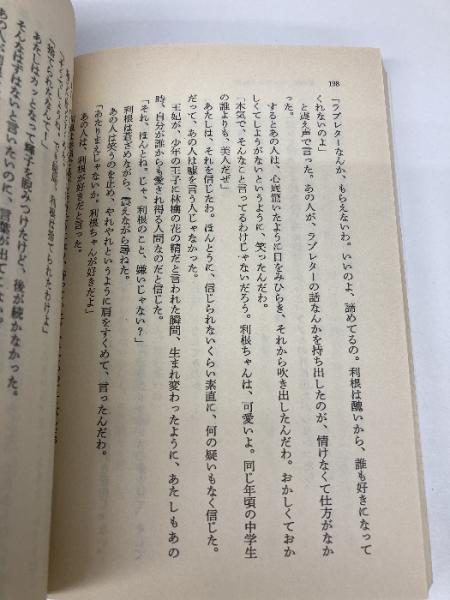 198
「ラブレターなんか、もらえないわ。いいのよ、諦めてるの。利根は醜いから、誰も好きになって
くれないのよ」
と震え声で言った。あの人が、ラブレターの話なんかを持ち出したのが、情けなくて仕方がなか
った。
するとあの人は、心底驚いたように目をみひらき、それから吹き出したんだわ。おかしくておか
しくてしようがないというように、笑ったんだわ。
「本気で、そんなこと言ってるわけじゃないだろう。利根ちゃんは、可愛いよ。同じ年頃の中学生
の誰よりも、美人だぜ」
あたしは、それを信じたわ。ほんとうに、信じられないくらい素直に、何の疑いもなく信じた。
だって、あの人は嘘を言う人じゃないもの。
王妃が、少年の王子に林檎の花の精だと言われた瞬間、生まれ変わったように、あたしもあの
時、自分が誰からも愛され得る人間なのだと信じた。
「それ、ほんとね。じゃ、利根のこと、嫌いじゃない？」
利根は蒼ざめながら、震えながら尋ねた。
あの人は笑うのを止め、やれやれというように肩をすくめて、言ったんだわ。
「あたりまえじゃないか。利根ちゃんが好きだよ」
あの人は、利根が好きだと言った。
利根は捨てられたわけよ」
「捨てられたなんて！」
あたしはカッとなって輝子を睨みつけたけど、後が続かなかった。
そんなはずはないと言いたいのに、言葉が出てこない。